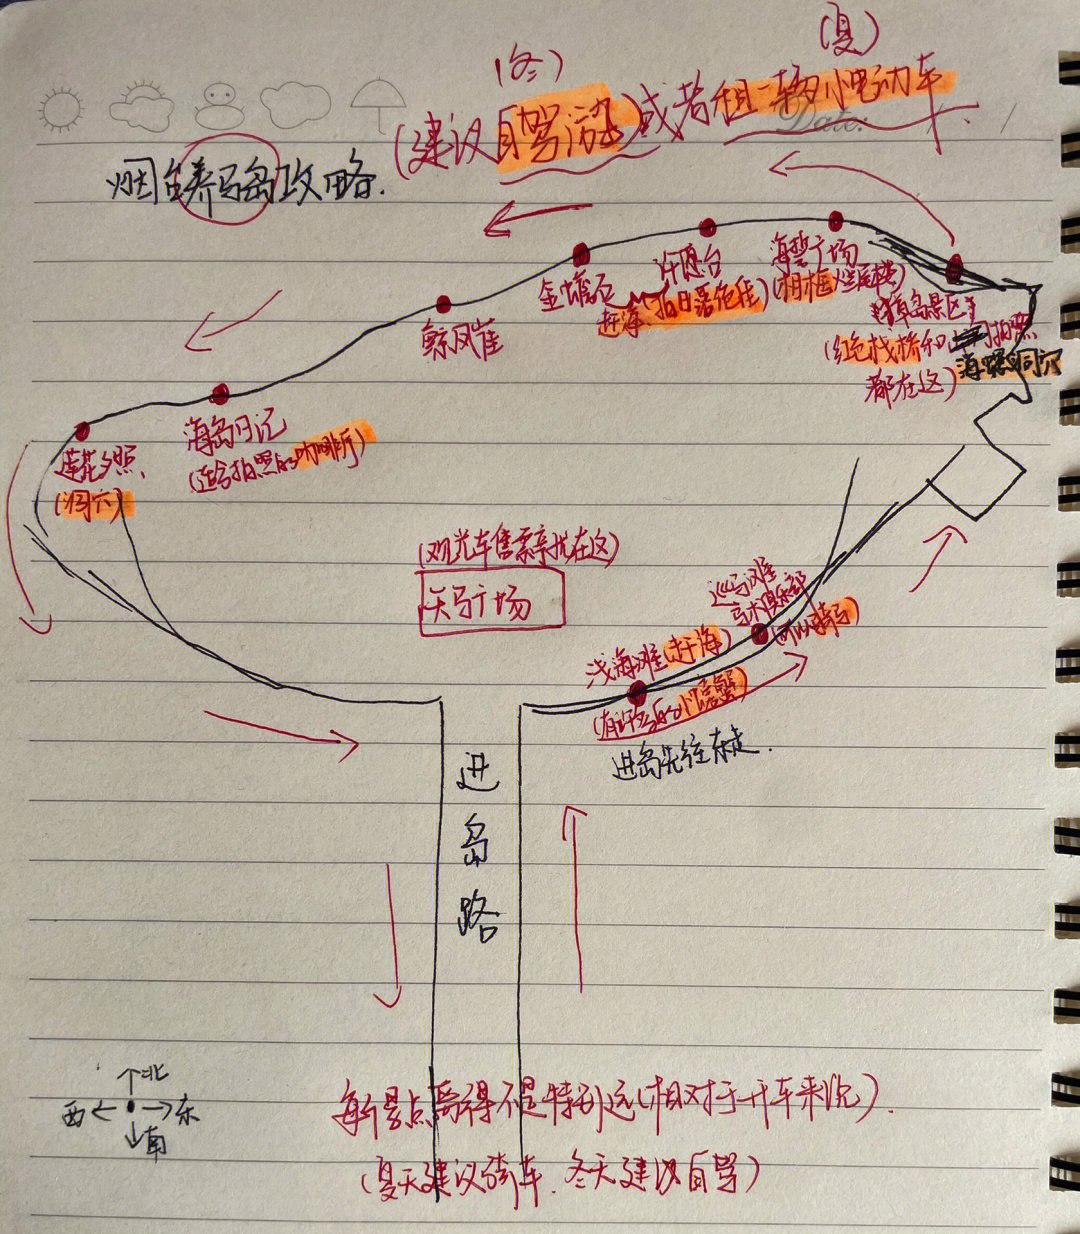 (冬)
(夏)
(建议自驾游)或者租一辆小电动车
Date:
烟台养马岛攻略.
许愿台
海誓广场
金蟾石
赶海、拍日落绝佳)
(相框烂尾楼)
獐岛景区
鲸凤崖
(红色栈桥和拍照
海螺洞穴
都在这)
海岛日记
(适合拍照的咖啡厅)
莲花夕照、
(洞穴)
(观光车售票亭就在这)
天马广场
巡马滩
马术俱乐部
(可以骑马)
浅海滩(赶海)
(有许多的小螃蟹)
进岛先往东走.
进
岛
路
北
西 东
南
每个景点离得不是特别远(相对于开车来说).
(夏天建议骑车.冬天建议自驾)